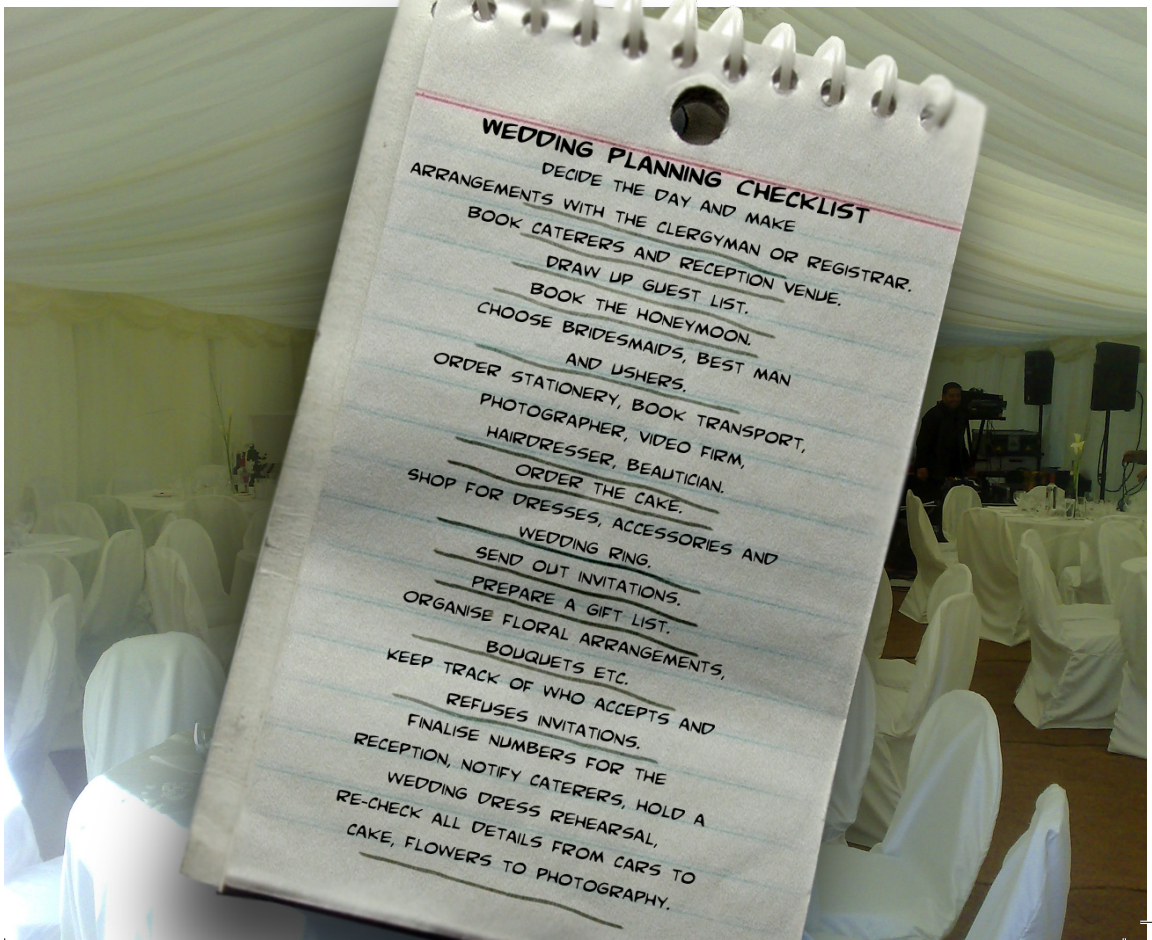 WEDDING PLANNING CHECKLIST
DECIDE THE DAY AND MAKE
ARRANGEMENTS WITH THE CLERGYMAN OR REGISTRAR.
BOOK CATERERS AND RECEPTION VENUE.
DRAW UP GUEST LIST.
BOOK THE HONEYMOON.
CHOOSE BRIDESMAIDS, BEST MAN
AND USHERS.
ORDER STATIONERY, BOOK TRANSPORT,
PHOTOGRAPHER, VIDEO FIRM,
HAIRDRESSER, BEAUTICIAN.
ORDER THE CAKE.
SHOP FOR DRESSES, ACCESSORIES AND
WEDDING RING.
SEND OUT INVITATIONS.
PREPARE A GIFT LIST.
ORGANISE FLORAL ARRANGEMENTS,
BOUQUETS ETC.
KEEP TRACK OF WHO ACCEPTS AND
REFUSES INVITATIONS.
FINALISE NUMBERS FOR THE
RECEPTION, NOTIFY CATERERS, HOLD A
WEDDING DRESS REHEARSAL,
RE-CHECK ALL DETAILS FROM CARS TO
CAKE, FLOWERS TO PHOTOGRAPHY.